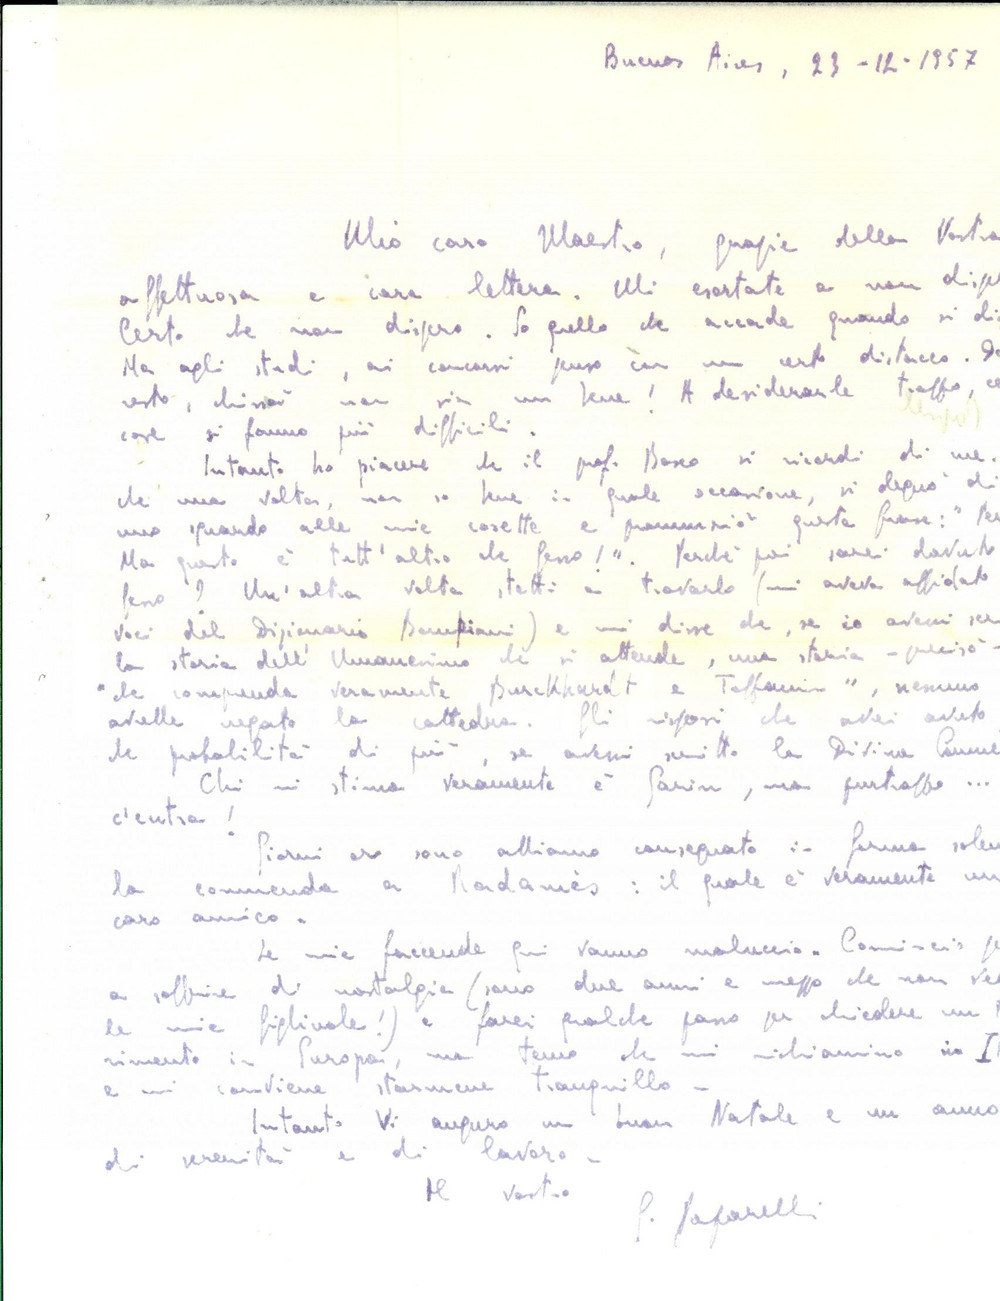 Buenos Aires, 23-12-1957
Mio caro Maestro, grazie della Vostra
affettuosa e cara lettera. Mi esortate a non disper
Certo che non dispero. So quello che accade quando si di
Ma agli studi, ai concorsi penso con un certo distacco. De
resto, chissà non sia un bene! A desiderarle troppo, ce
cose si fanno più difficili.
Intanto ho piacere che il prof. Bosco si ricordi di me.
che una volta, non so bene in quale occasione, si degnò di
uno sguardo alle mie cosette e pronunziò questa frase: "Per
Ma questo è tutt'altro che fesso!". Perché poi sarei dovuto
fesso? Un'altra volta stetti a trovarlo (mi aveva affidato
voci del Dizionario Bompiani) e mi disse che, se io avessi scr
la storia dell'Umanesimo che si attende, una storia - precisò -
"che comprenda veramente Burckhardt e Toffanin", nessuno
avrebbe negato la cattedra. Gli risposi che avrei avuto
che probabilità di più, se avessi scritto la Divina Comme
Chi mi stima veramente è Garin, ma purtroppo ...
c'entra!
Giorni or sono abbiamo consegnato in forma solen
la commenda a Radamès: il quale è veramente un
caro amico.
Le mie faccende qui vanno maluccio. Comincio
a soffrire di nostalgia (sono due anni e mezzo che non ve
le mie figliuole!) e farei qualche passo per chiedere un t
rimento in Europa, ma temo che mi richiamino in I
e mi conviene starmene tranquillo -
Intanto Vi auguro un buon Natale e un anno
di serenità e di lavoro -
Il vostro
G. Paparelli